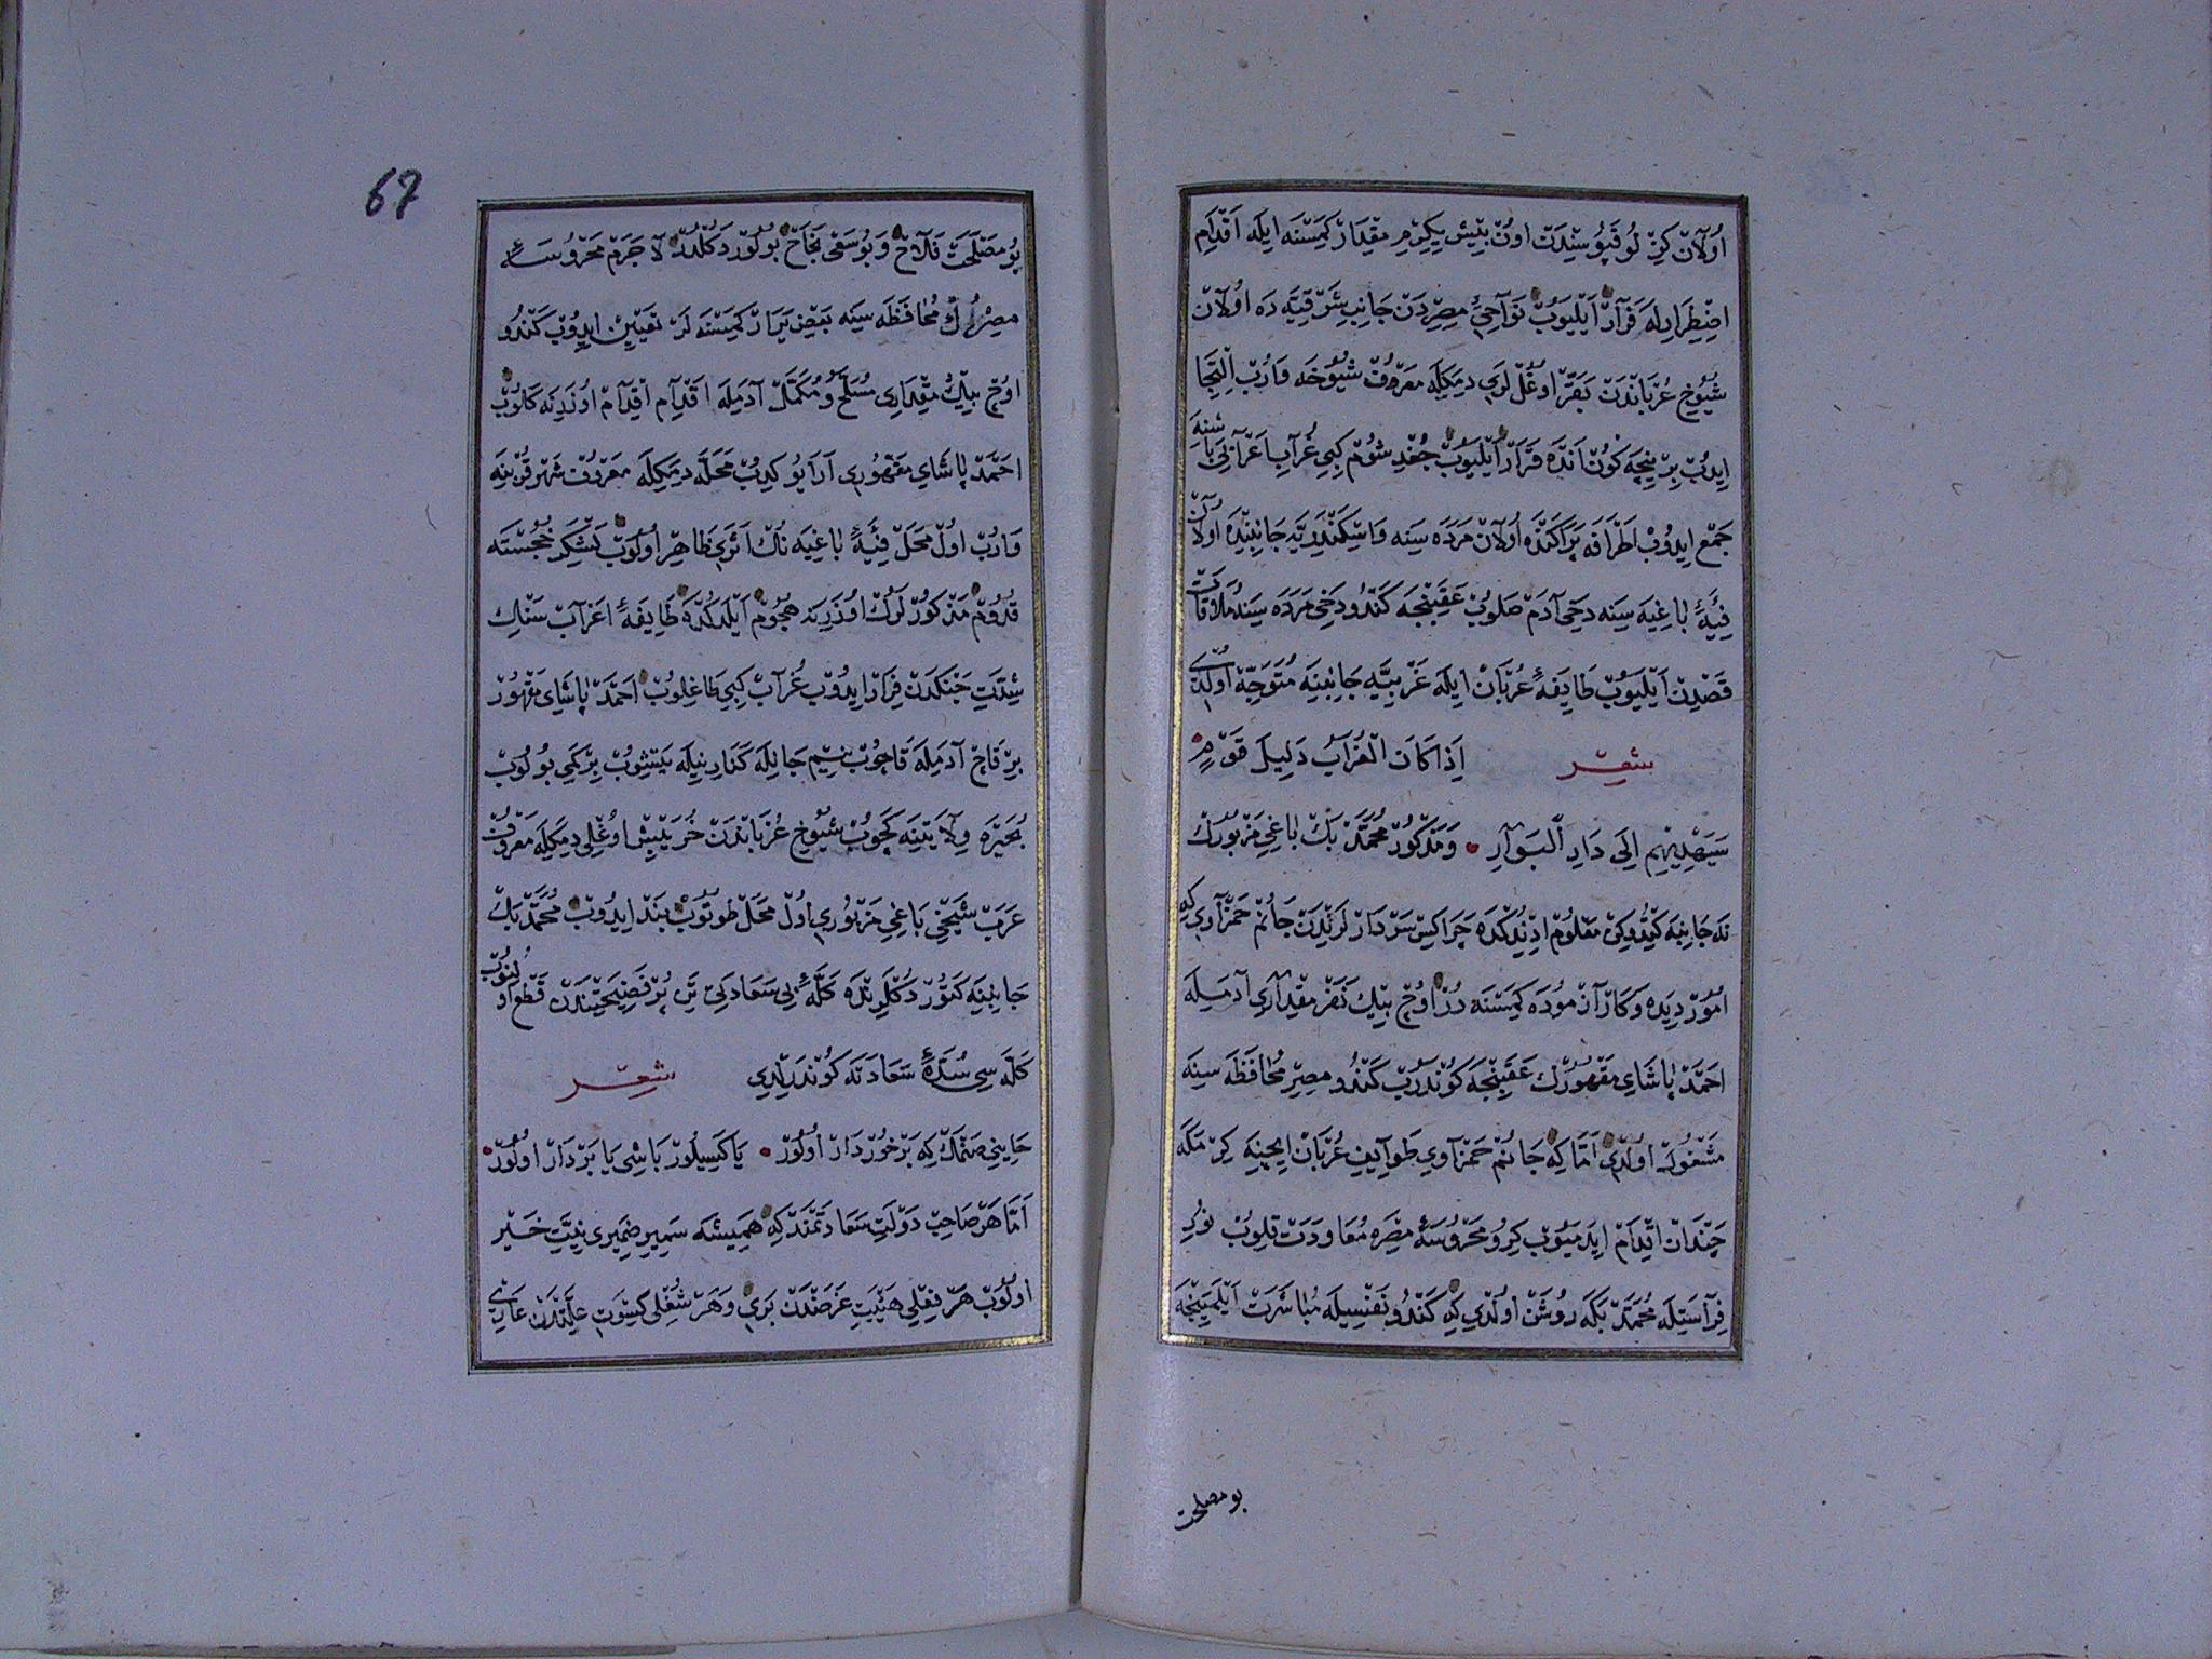 اولان كزلو قپوسيندن اون بيش يكرمي مقدار كمسنه ايله اقدام
اضطرارله فرار ايليوب نواحئ مصردن جانب شرقيه ده اولان
شيوخ عرباندن بقر اوغللري ديمكله معروف شيوخه واروب التجا
ايدوب بر نيچه كون انده قرار ايليوب جغد شوم كبي غراب اعرابي باشنه
جمع ايدوب اطرافه پراكنده اولان مرده سنه و اسكندريه جانبنده اولان
فئهٔ باغيه سنه دخي آدم صلوب عقبنجه كندو دخي مرده سنه ملاقات
قصدين ايليوب طايفهٔ عربان ايله غربيه جانبنه متوجه اولدي
شعر اذا كان الغراب دليل قوم
سيهديهم الى دار البوار ومذكور محمد بك باغي مزبورك
نه جانبه كيتدوكن معلوم ادندكده چراكس سردارلرندن جانم حمزاوي كه
امور ديده و كار آزموده كمسنه در اوچ بيك نفر مقداري آدمله
احمد پاشاي مقهورك عقبنجه كوندروب كندو مصر محافظه سنه
مشغول اولدي اما كه جانم حمزاوي طوايف عربان ايچنه كرمكه
چندان اقدام ايدميوب كرو محروسهٔ مصره معاودت قلوب نور
فراستله محمد بكه روشن اولدي كه كندو نفسيله مباشرت ايلمينجه
بو مصلحت
67
بو مصلحت فلاح و بو سعى نجاح بولور دكلدر لا جرم محروسهٔ
مصرك محافظه سنه بعض يرار كمسنه لر تعيين ايدوب كندو
اوچ بيك مقداري مسلح و مكمل آدمله اقدام اقدام اوزرنه كالوب
احمد پاشاي مقهوري آرايو كيدوب محله ديمكله معروف شهر قربنه
واروب اول محل فئهٔ باغيه نك اثري ظاهر اولوب لشكر خجسته
قدوم مذكورلرك اوزرنه هجوم ايلدكده طايفهٔ اعراب سنك
شدت جنكدن فرار ايدوب غراب كبي طاغلوب احمد پاشاي مقهور
بر قاچ آدمله قاچوب نيم جانله كنار نيله يتشوب بر كمي بولوب
بحيره ولايتنه كچوب شيوخ عرباندن خريبش اوغلي ديمكله معروف
عرب شيخي باغي مزبوري اول محل طوتوب بند ايدوب محمد بك
جانبنه كتوردكلرنده كلهٔ بي سعادتي تن پر فضيحتندن قطع اولنوب
كله سي سدهٔ سعادته كوندرلدي شعر
خايني صنمك كه برخوردار اولور يا كسيلور باشي يا بردار اولور
اما هر صاحب دولت سعادتمند كه هميشه سمير ضميري نيت خير
اولوب هر فعلي هيبت غرضدن بري و هر شغلي كسوت علتدن عاري